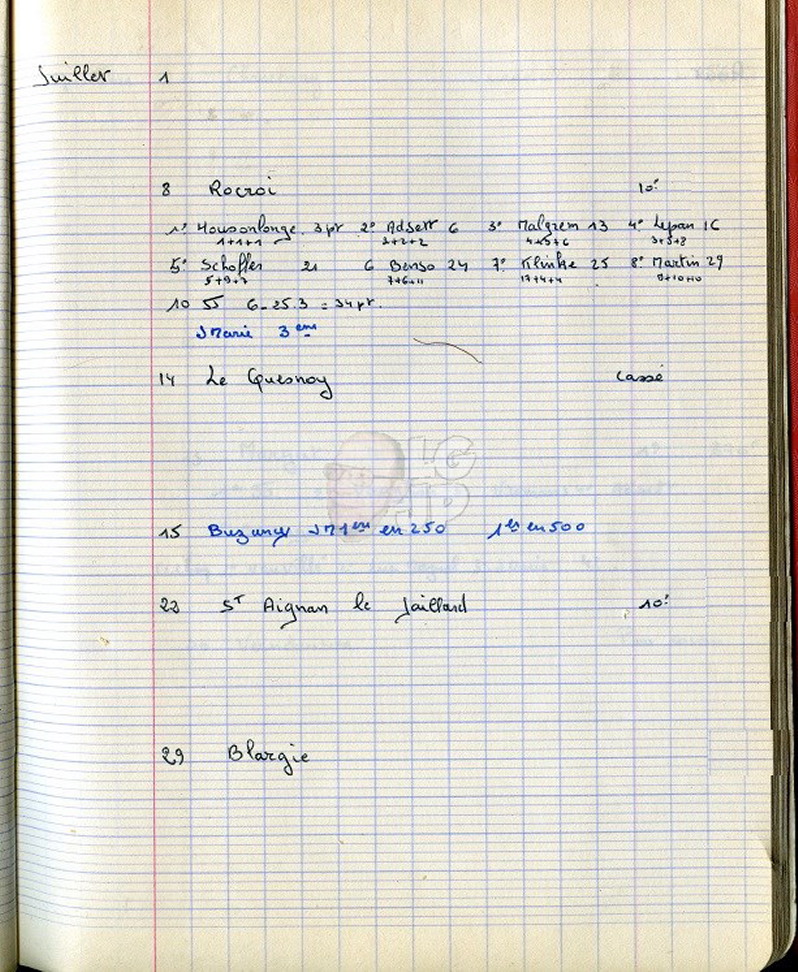 Juillet 1
8 Rocroi 10e
1o Housonlonge. 3 pt 2o Adsett 6 3o Malgrem 13 4o Lepan 16
1+1+1 2+2+2 4+5+6 3+5+8
5o Schoffer 21 6 Benso 24 7o Klinke 25 8o Martin 29
5+9+7 7+6+11 17+4+4 9+10+10
10 55 6-25.3 = 34 pt.
JMarie 3eme
14 Le Quesnoy cassé
LG
TD
15 Buzancy JM 1ere en 250 1er en 500
23 St Aignan le Jaillard 10e
29 Blargie